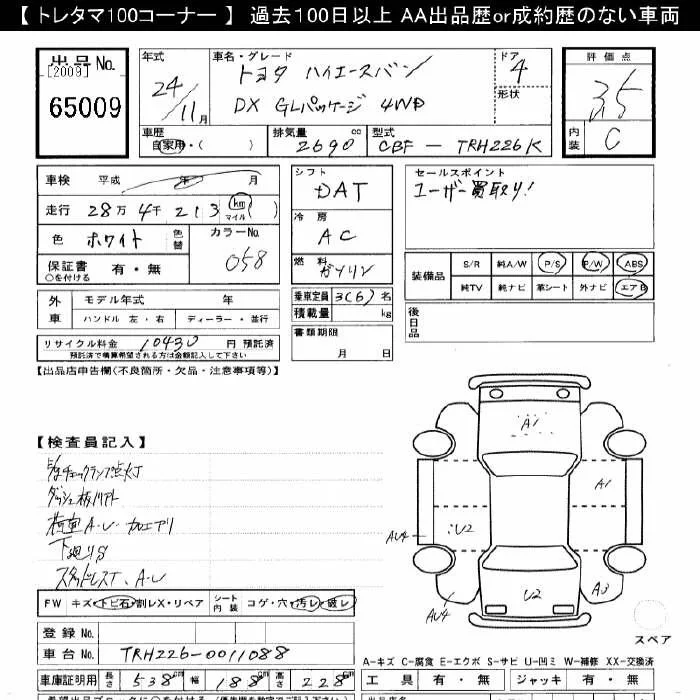 【 トレタマ100コーナー 】 過去100日以上 AA出品歴or成約歴のない車両
出品No.
[2009]
65009
年式
24/11月
車名・グレード
トヨタ ハイエースバン
DX GLパッケージ 4WD
ドア
4
形状
評価点
3.5
内装
C
車歴
自家用・( )
排気量
2690 cc
型式
CBF - TRH226K
車検 平成 年 月
走行 28万4千213 km マイル( )
色 ホワイト 色替
カラーNo.
058
保証書 有・無
○を付ける
シフト
DAT
冷房
AC
燃料
ガソリン
乗車定員 3(6)名
積載量 kg
書類期限
月 日
セールスポイント
ユーザー買取り!
装備品
S/R 純A/W P/S P/W ABS
純TV 純ナビ 革シート 外ナビ エアB
後日品
外車
モデル年式 年
ハンドル 左・右 ディーラー・並行
リサイクル料金 10430 円 預託済
預託済で積算希望される方は金額記入して下さい
【出品店申告欄(不良箇所・欠品・注意事項等)】
【検査員記入】
チェックランプ点灯
A・U
下廻りS
スタッドレスT、A・U
A1
A1
U2
AU4
U2
A3
AU4
スペア
FW キズ・トビ石・割レX・リペア シート内装 コゲ・穴・汚レ・破レ
登録No.
車台No. TRH226-0011088
車庫証明用 長さ 538cm 幅 188cm 高さ 228cm
A-キズ C-腐食 E-エクボ S-サビ U-凹ミ W-補修 XX-交換済
工具 有・無 ジャッキ 有・無